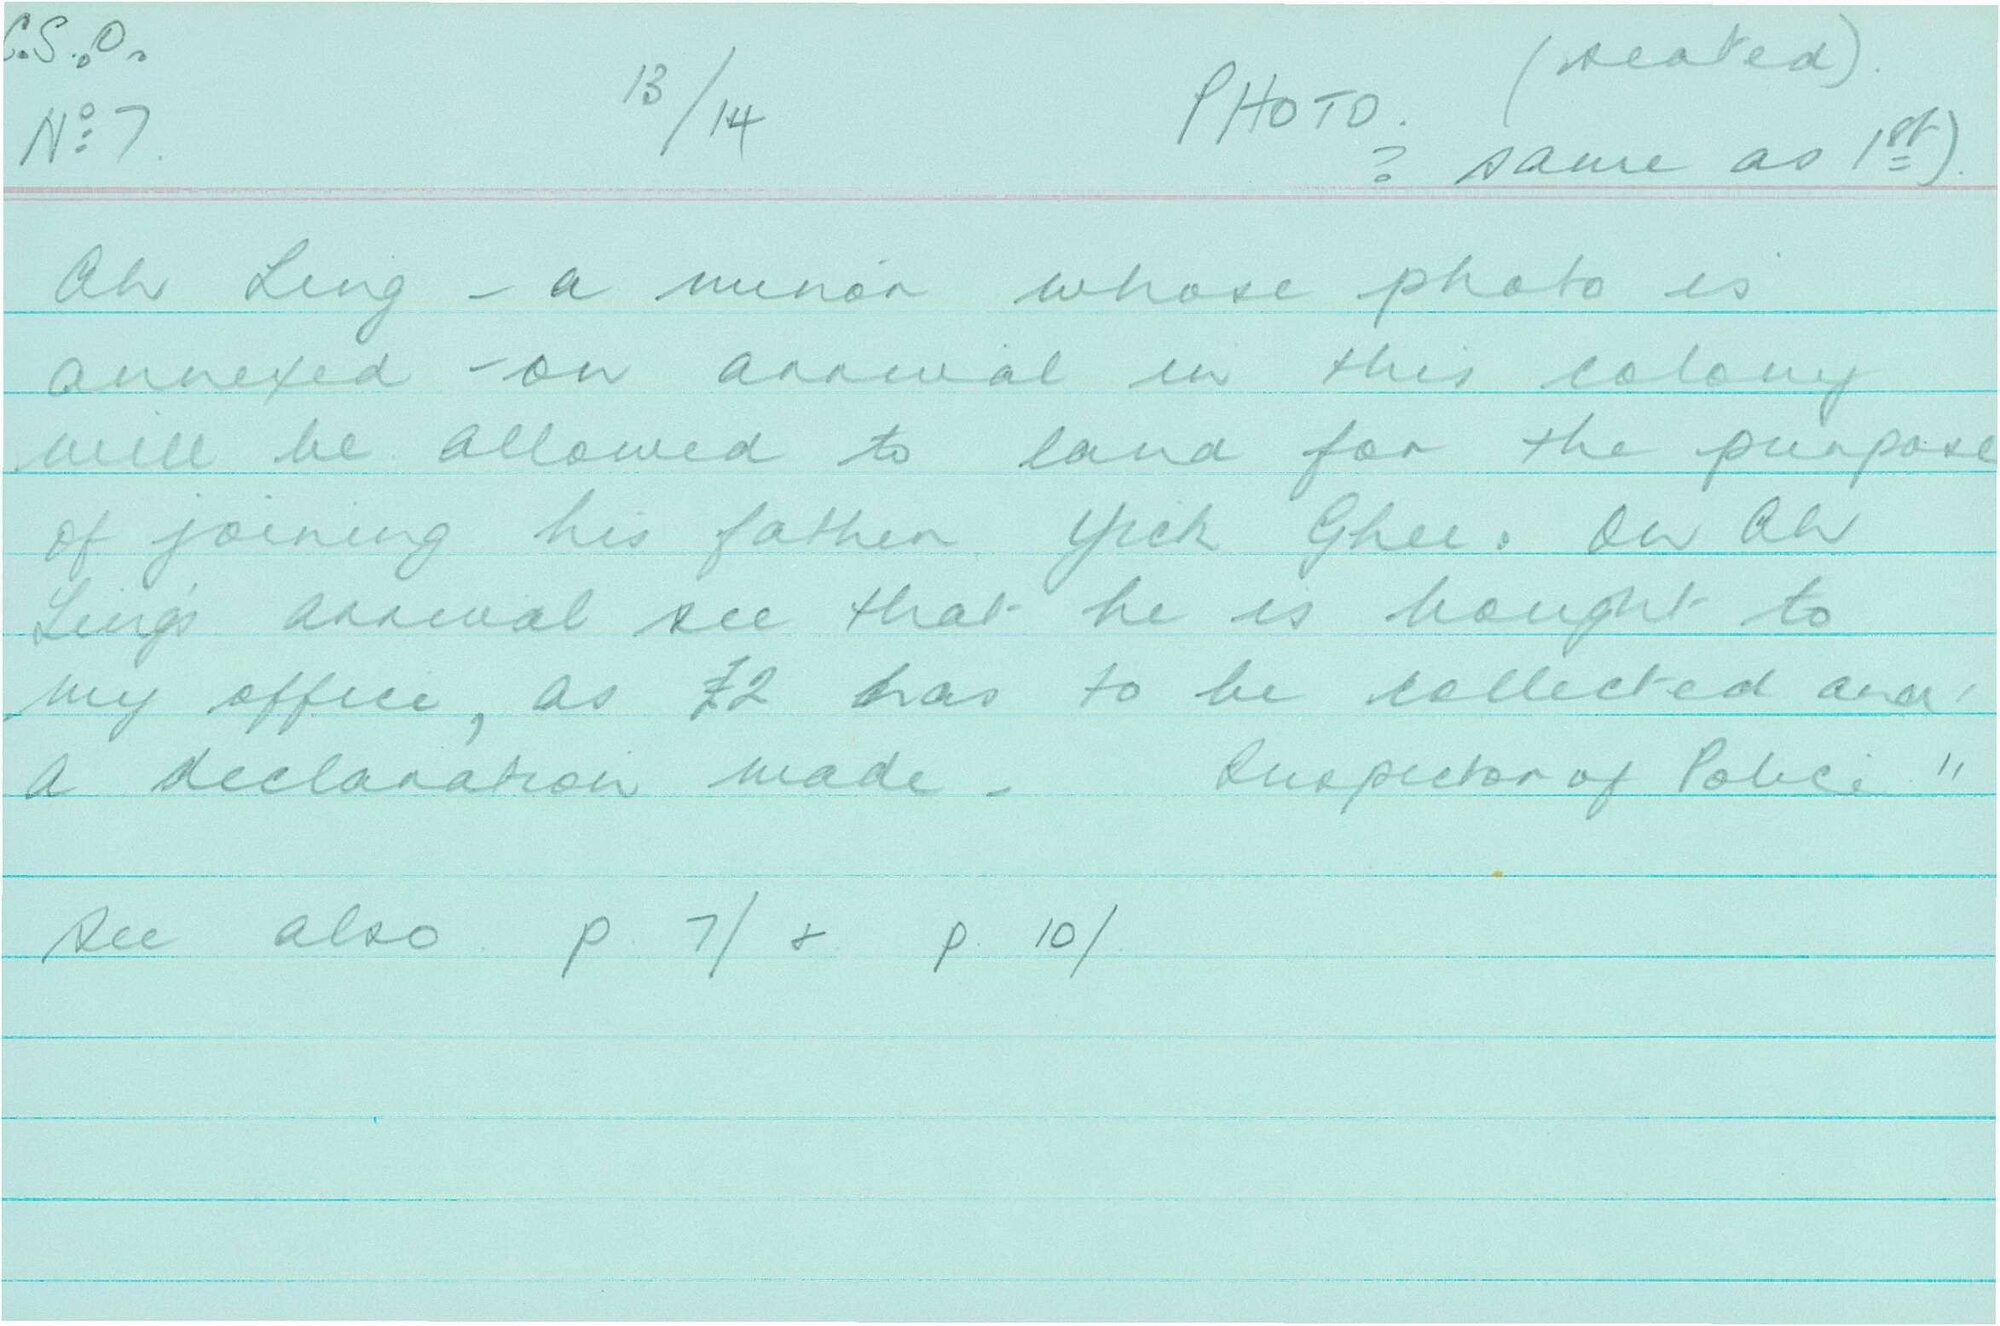 C.S.O. 13/14 PHOTO. (seated).
No. 7. ? same as 1st).
Ah Ling - a minor whose photo is
annexed - on arrival in this colony
will be allowed to land for the purpose
of joining his father Yick Ghee. On Ah
Ling's arrival see that he is bought to
my office, as £2 has to be collected and
a declaration made - Inspector of Police "
See also p 7/ & p 10/